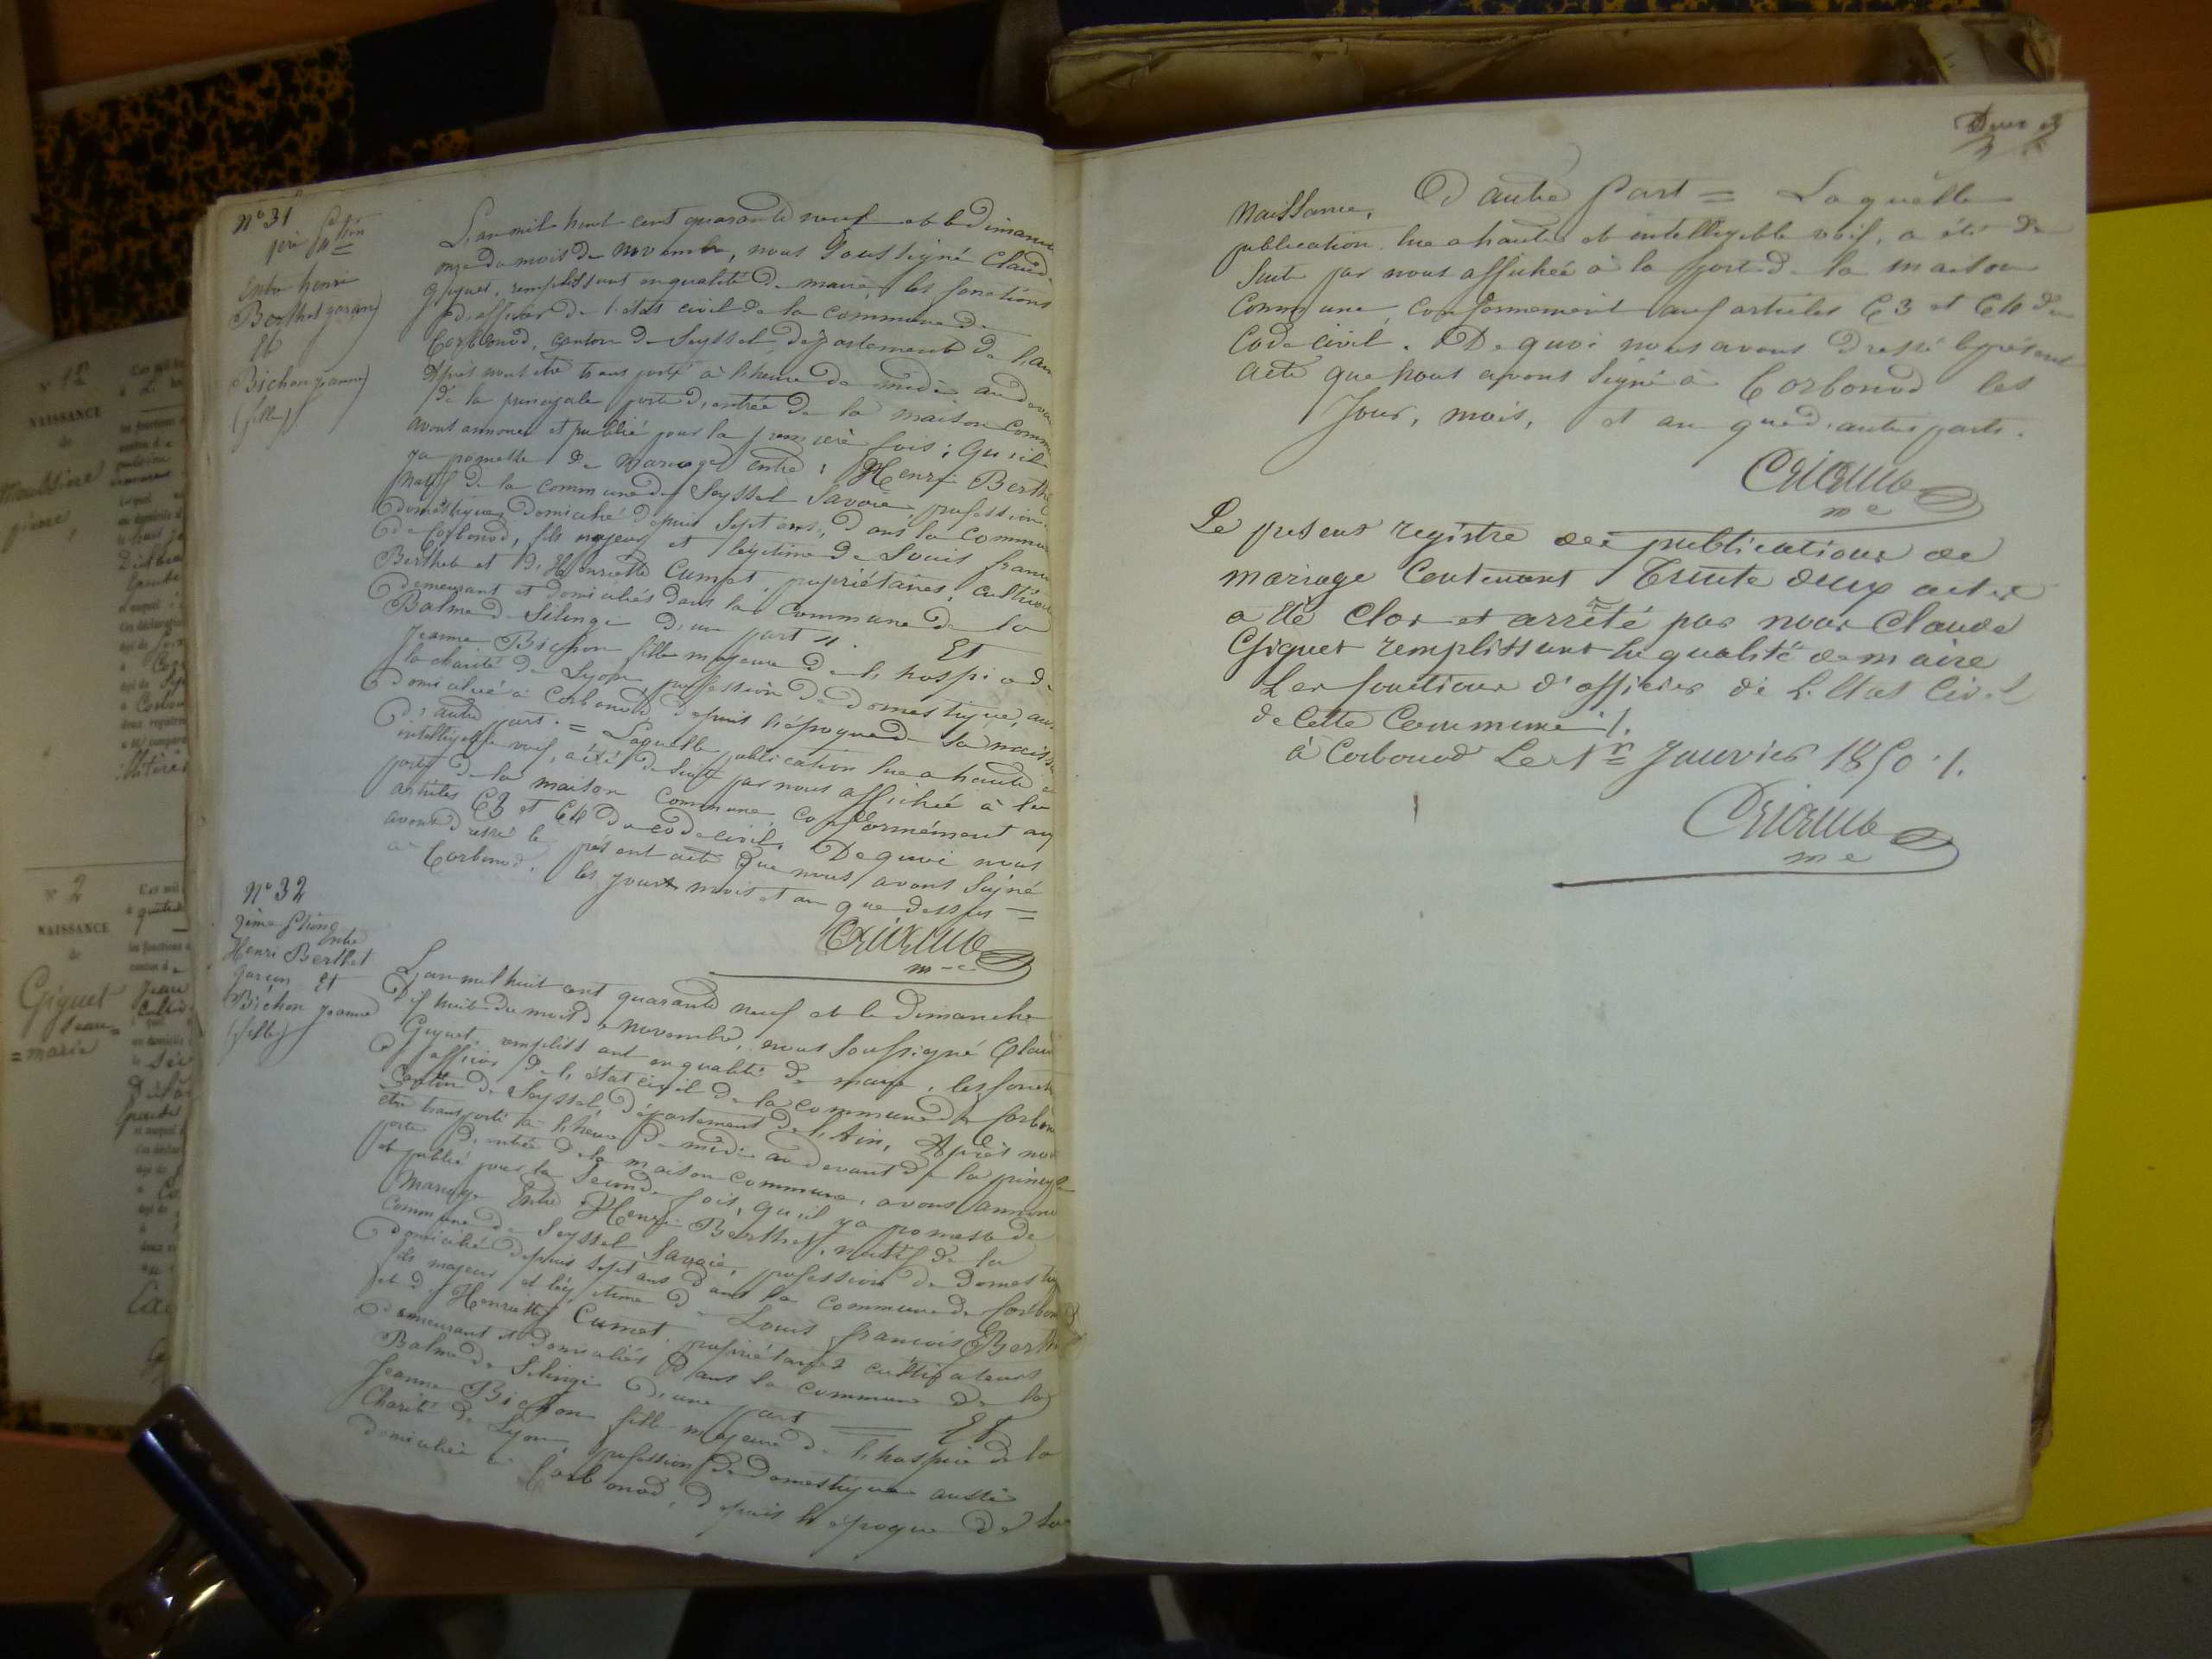 N° 31
entre henri
Berthet garçon
Et
Bichon jeanne
(fille)
L'an mil huit cent quarante neuf et le Dimanche
onze du mois de novembre, nous Soussigné Claude
Giguet, remplissant en qualité de maire, les fonctions
d'officier de l'état civil de la commune de
Corbonod, canton de Seyssel, département de l'ain
Après nous être transporté à l'heure de midi au devant
de la principale porte d'entrée de la maison comm
avons annoncé et publié pour la première fois; qu'il
y a promesse de mariage entre; Henri Berthe
natif de la commune de Seyssel Savoie, profession
domestique, domicilié depuis sept ans, dans la commu
de Corbonod, fils majeur et légitime de Louis franc
Berthet et d'Henriette Cumet, propriétaires, cultiva
demeurant et domiciliés dans la commune de la
Balme de Silingi d'une part. Et
Jeanne Bichon fille majeure de l'hospice de
la charité de Lyon profession de domestique, aus
domiciliée à Corbonod, depuis l'époque de sa naiss
d'autre part. = Laquelle publication lue a haute
intelligible voix, a été de suite par nous affichée à la
porte de la maison commune, conformément au
articles 63 et 64 du code civil. De quoi nous
avons dressé le présent acte que nous avons Signé
à Corbonod, les jour mois et an que dessus =
Giguet
me
N° 32
2ème
entre
Henri Berthet
garçon Et
Bichon jeanne
(fille)
L'an mil huit cent quarante neuf et le Dimanche
dix huit du mois de novembre, nous Soussigné Clau
Giguet, remplissant en qualité de maire, les fonct
d'officier de l'état civil de la commune de Corbon
Canton de Seyssel, département de l'Ain, Après nou
être transporté à l'heure de midi au devant de la princip
porte d'entrée de la maison commune, avons annoncé
et publié pour la seconde fois, qu'il y a promesse de
mariage Entre Henri Berthet, natif de la
commune de Seyssel Savoie, profession de domestiq
domicilié depuis sept ans dans la commune de Corbonod
fils majeur et légitime de Louis francois Berth
et d'Henriette Cumet, propriétaires cultivateurs
demeurant et domiciliés dans la commune de la
Balme de Silingi d'une part — Et
Jeanne Bichon fille majeure de l'hospice de la
Charité de Lyon, profession de domestique aussi
domiciliée à Corbonod, depuis l'époque de sa
naissance, D'autre Part = Laquelle
publication lue a haute et intelligible voix, a été de
suite par nous affichée à la porte de la maison
Commune, conformément aux articles 63 et 64 du
Code civil. De quoi nous avons dressé le présent
acte que nous avons signé à Corbonod les
Jour, mois, et an que d'autre part.
Giguet
me
Le present registre des publications de
mariage Contenant Trente deux actes
a été clos et arrêté par nous Claude
Giguet remplissant en qualité de maire
Les fonctions d'officier de L'Etat Civil
de Cette Commune ./.
à Corbonod Le 1er Janvier 1850 ./.
Giguet
me
N° 12
NAISSANCE
de
N° 2
NAISSANCE
de
Giguet
Jean=
=marie